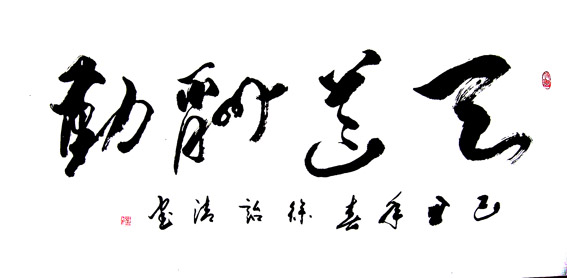 天道酬勤
己丑年春徐清書